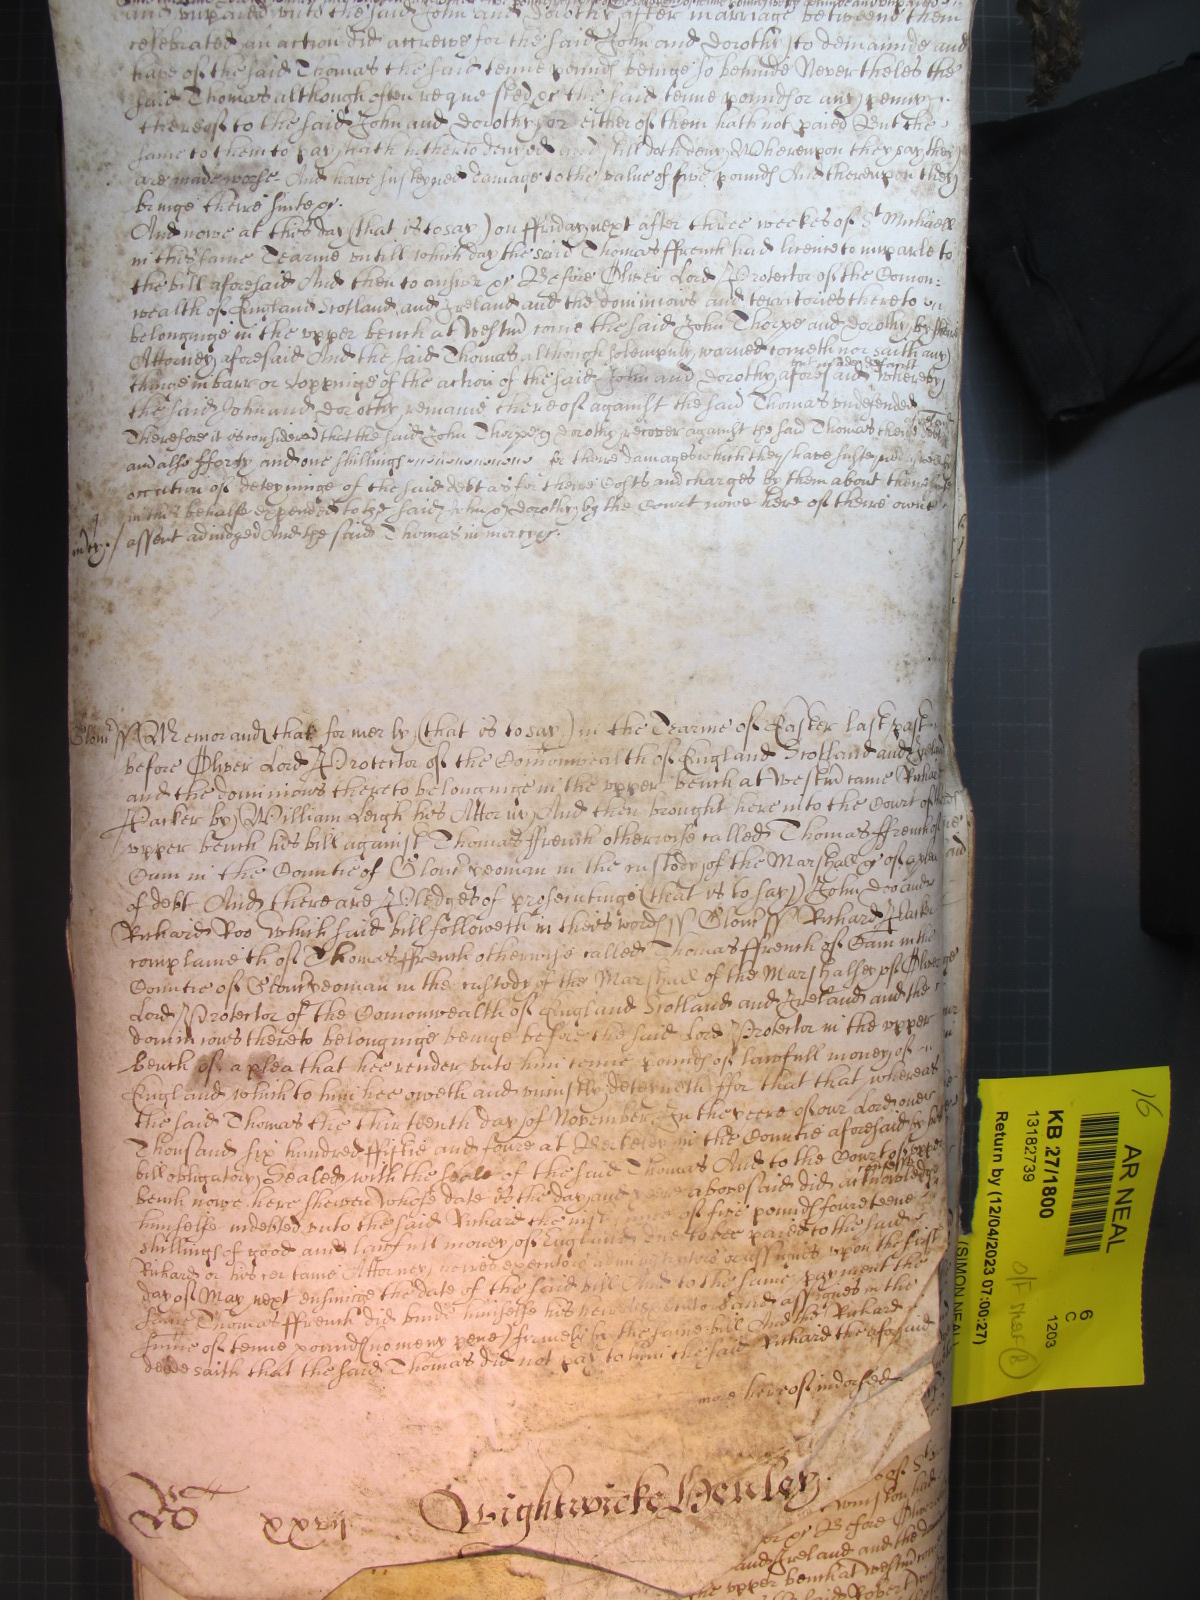 and unpaied unto the said John and Dorothy after marriage betweene them
celebrated an action did accrewe for the said John and Dorothy to demaunde and
have of the said Thomas the said tenne pounds beinge so behinde Never theles the
said Thomas although often requested &c the said tenne pounds or any penny
thereof to the said John and Dorothy or either of them hath not paied But the
same to them to pay hath hitherto denyed and still doth deny Whereupon they say they
are made worse And have susteyned damage to the value of five pounds And thereupon they
bringe theire suite &c.
And nowe at this day (that is to say) on ffriday next after three weekes of St Michaell
in this same Tearme untill which day the said Thomas ffrench had licence to imparle to
the bill aforesaid And then to answer &c Before Oliver Lord Protector of the Comon:
wealth of England Scotland and Ireland and the dominions and territories thereto
belonginge in the upper bench at Westm come the said John Thorpe and Dorothy by theire
Attorney aforesaid And the said Thomas although solempnly warned cometh not nor saith any
thinge in barr or stoppinge of the action of the said John and Dorothy aforesaid whereby
the said John and Dorothy remaine thereof against the said Thomas undefended
Therefore it is considered that the said John Thorpe & Dorothy recover against the said Thomas theire debt
and also fforty and one shillings for theire damages which they have susteyned
occasion of deteyninge of the said debt as for theire Costs and charges by them about theire
in this behalfe expended to the said John & Dorothy by the Court nowe here of theire owne
assent adiudged And the said Thomas in mercy &c.
Glouc ss Memorand that formerly (that is to say) in the Tearme of Easter last past
before Oliver Lord Protector of the Comonwealth of England Scotland and Ireland
and the dominions thereto belonginge in the upper bench at Westm came Richard
Parker by William Leigh his Attorny And then brought here into the Court of
upper bench his bill against Thomas ffrench otherwise called Thomas ffrench of
Cam in the Countie of Glouc yeoman in the custody of the Marshall &c of a plea
of debt And there are Pledges of prosecutinge (that is to say) John Doo and
Richard Roo Which said bill followeth in theis words ss Glouc ss Richard Parker
complaineth of Thomas ffrench otherwise called Thomas ffrench of Cam in the
Countie of Glouc yeoman in the custody of the Marshall of the Marshalsey of Oliver
Lord Protector of the Comonwealth of England Scotland and Ireland and the
dominions thereto belonginge beinge before the said Lord Protector in the upper
Bench of a plea that hee render unto him tenne pounds of lawfull money of
England which to him hee oweth and uniustly deteyneth ffor that that whereas
the said Thomas the thirteenth day of November In the yeere of our Lord one
Thousand six hundred ffiftie and foure at in the Countie aforesaid by his
bill obligatory Sealed with the seale of the said Thomas And to the Court of upper
bench nowe here shewen whose date is the day and yeere abovesaid did acknowledge
himselfe indebted unto the said Richard the of five pounds fourteene
shillings of good and lawfull money of England to bee paied to the said
Richard or his certaine Attorney heires executors administrators or assignes upon the first
day of May next ensuinge the date of the said bill And to the same payment the
same Thomas ffrench did binde himselfe his heires and assignes in the
summe of tenne pounds firmely by the same bill And the Richard
deede saith that the said Thomas did not pay to him the said Richard the aforesaid
more hereof indorsed
Ro xxvii Wightwicke Henley
of St
&c Before Oliver
and Ireland and the
the upper bench at Westm come
said Robert
16
AR NEAL
KB 27/1800
13182739
Return by (12/04/2023 07:00:27)
(SIMON NEAL)
6
C
1203